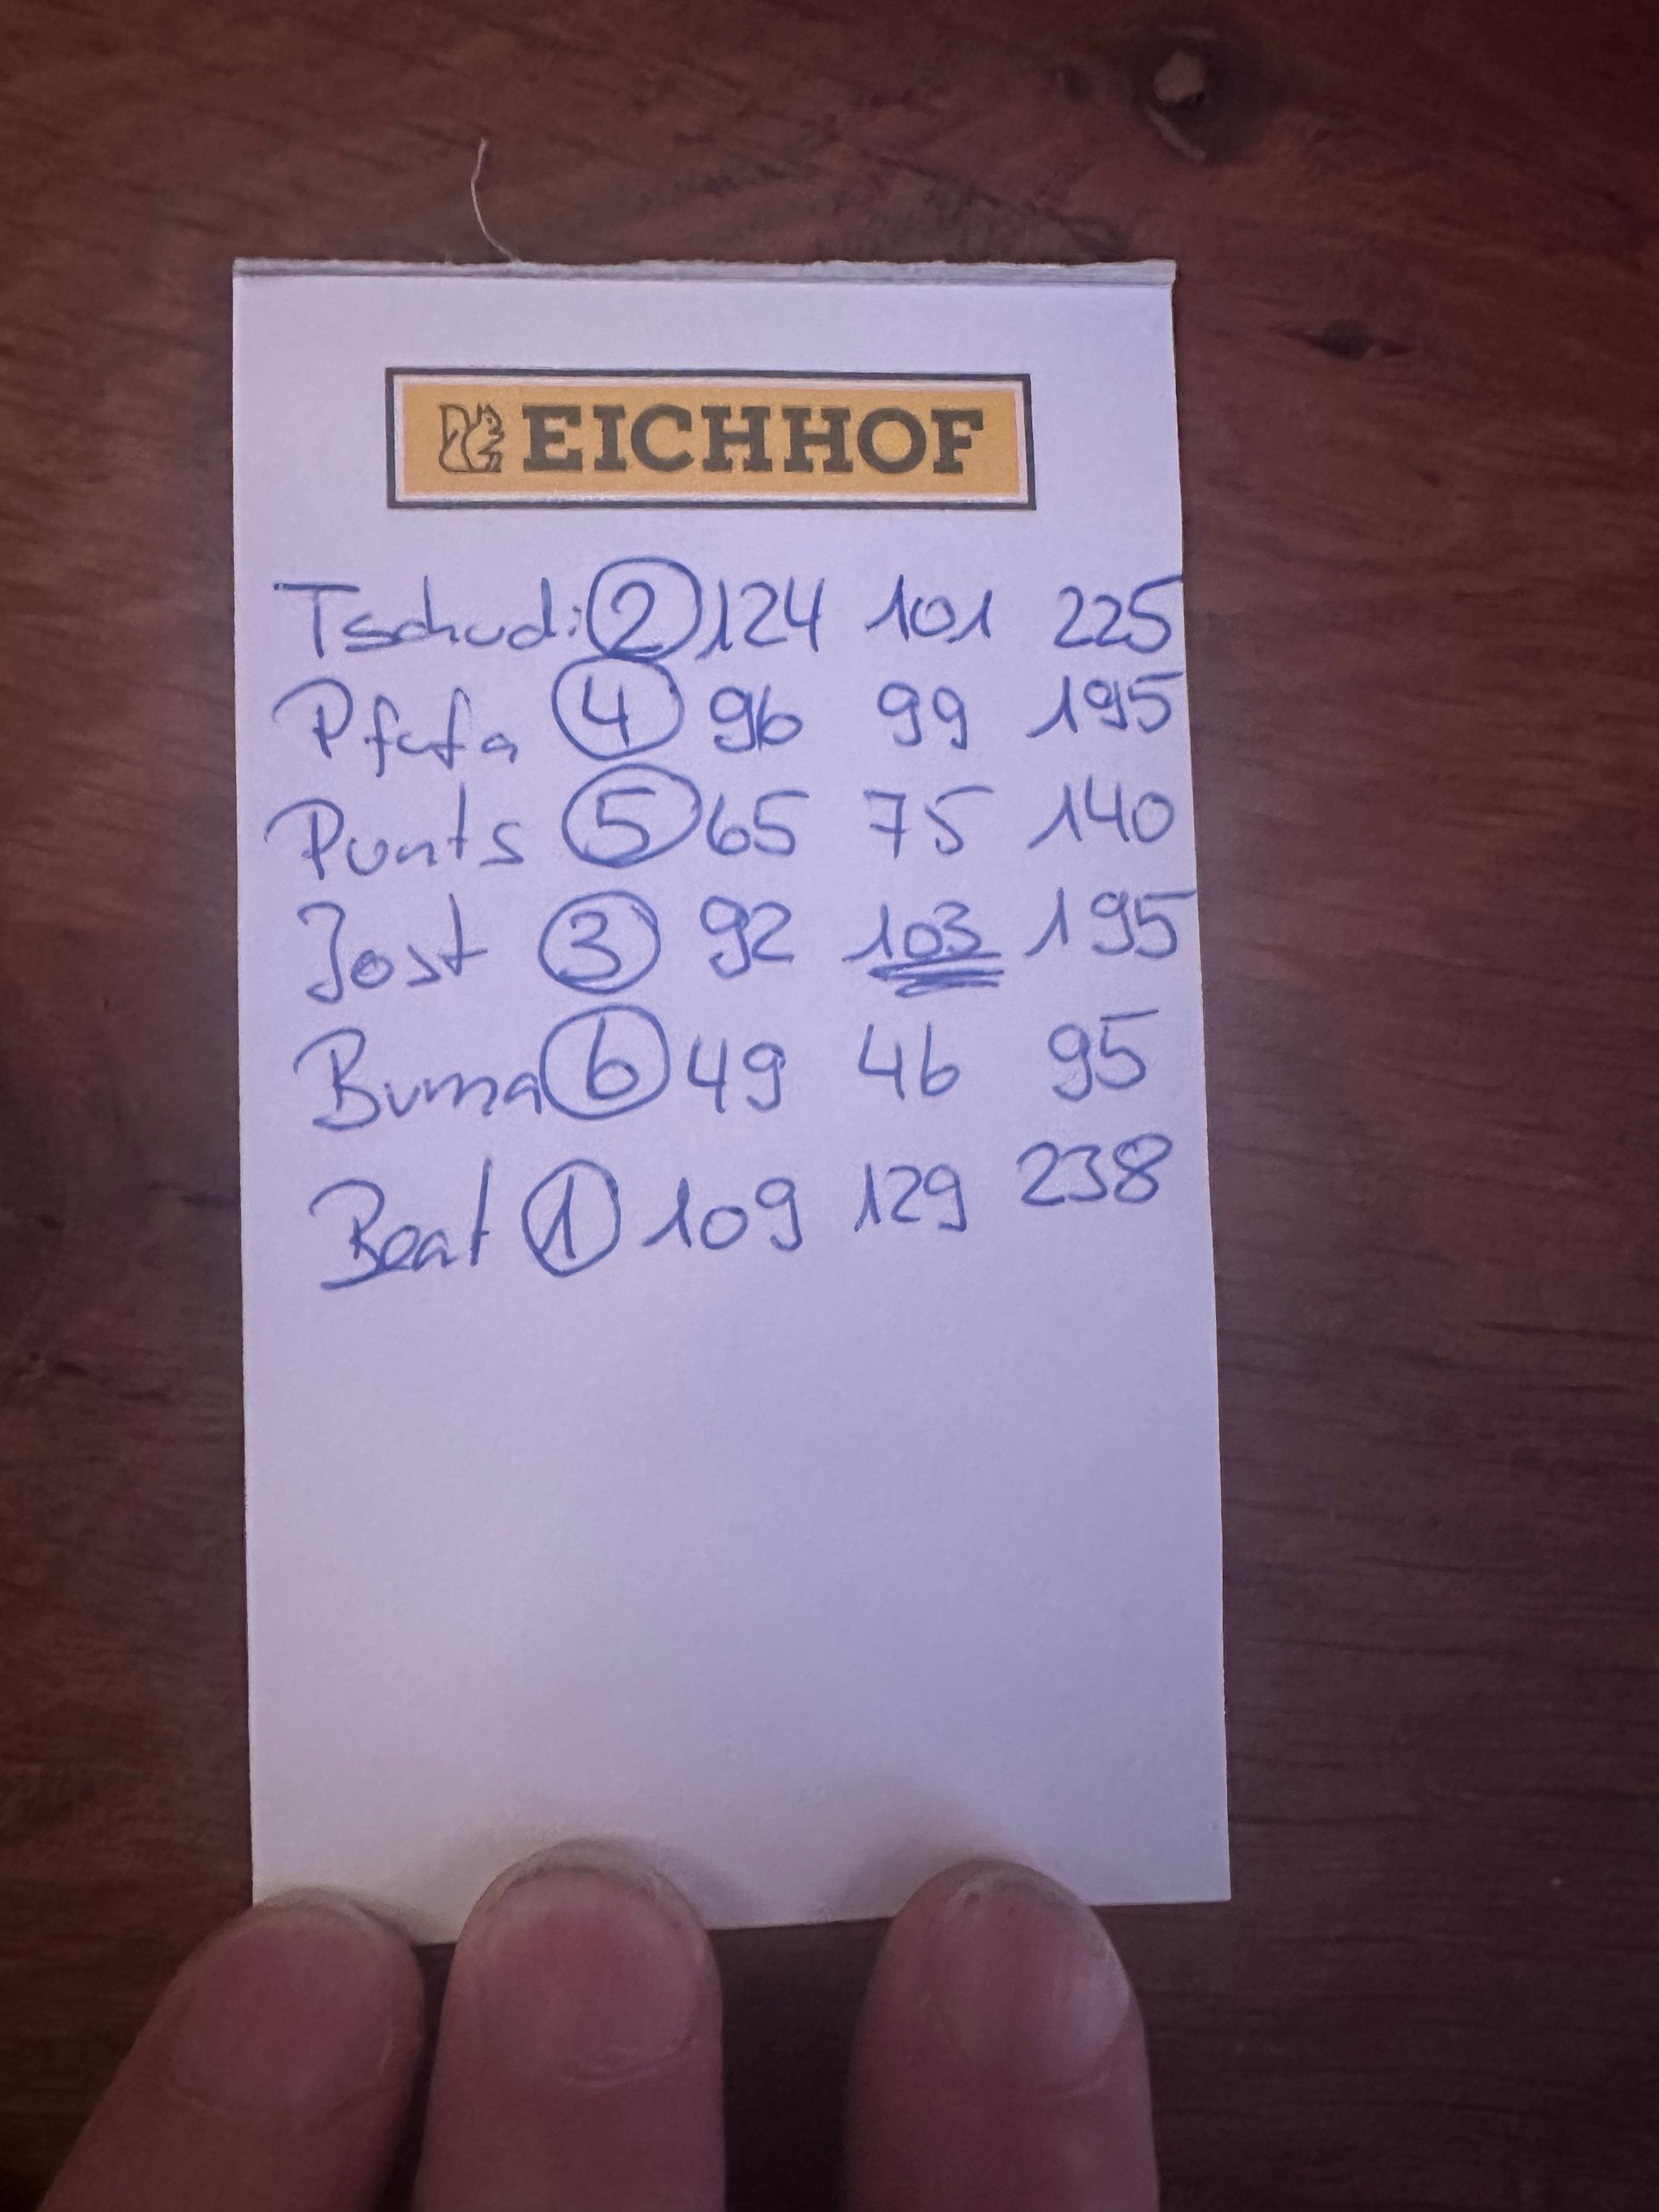 EICHHOF
Tschudi 2 124 101 225
4 96 99 195
Punts 5 65 75 140
Jost 3 92 103 195
Buma 6 49 46 95
Beat 1 109 129 238